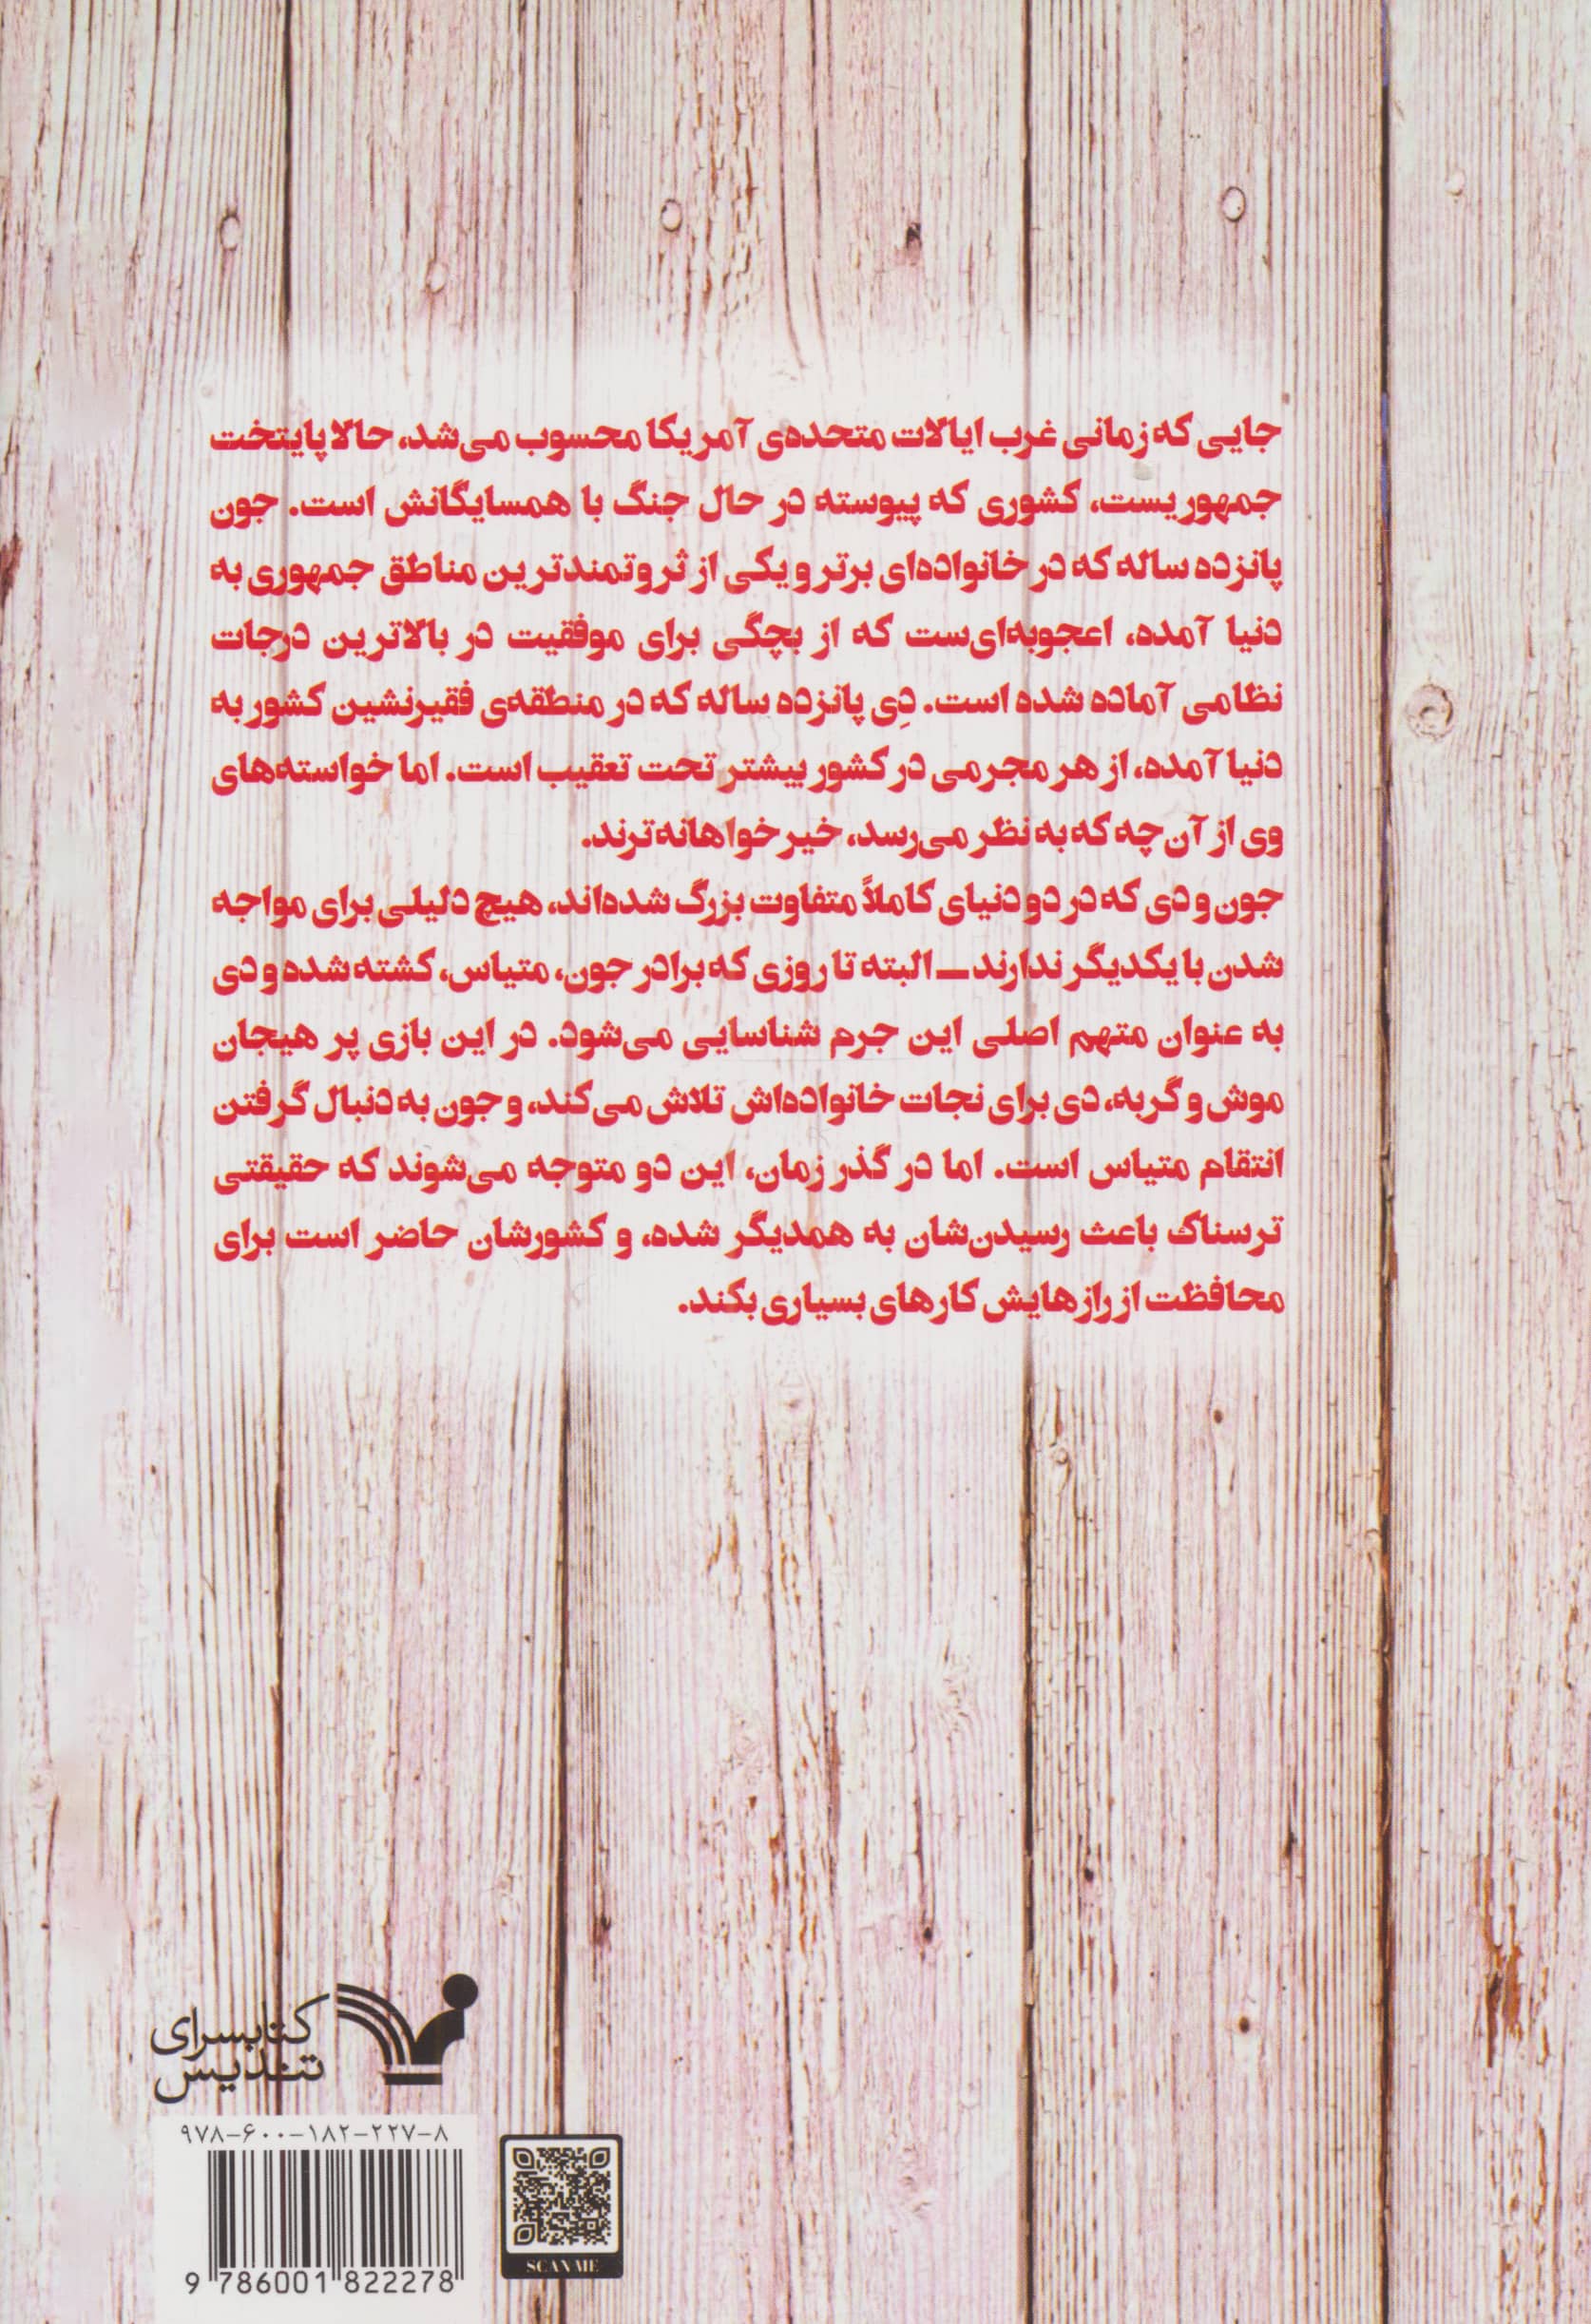 جایی که زمانی غرب ایالات متحده‌ی آمریکا محسوب می‌شد، حالا پایتخت
جمهوریست، کشوری که پیوسته در حال جنگ با همسایگانش است. جون
پانزده ساله که در خانواده‌ای برتر و یکی از ثروتمندترین مناطق جمهوری به
دنیا آمده، اعجوبه‌ای‌ست که از بچگی برای موفقیت در بالاترین درجات
نظامی آماده شده است. دِی پانزده ساله که در منطقه‌ی فقیرنشین کشور به
دنیا آمده، از هر مجرمی در کشور بیشتر تحت تعقیب است. اما خواسته‌های
وی از آن چه که به نظر می‌رسد، خیرخواهانه‌ترند.
جون و دی که در دو دنیای کاملاً متفاوت بزرگ شده‌اند، هیچ دلیلی برای مواجه
شدن با یکدیگر ندارند ـــ البته تا روزی که برادر جون، متیاس، کشته شده و دی
به عنوان متهم اصلی این جرم شناسایی می‌شود. در این بازی پر هیجان
موش و گربه، دی برای نجات خانواده‌اش تلاش می‌کند، و جون به دنبال گرفتن
انتقام متیاس است. اما در گذر زمان، این دو متوجه می‌شوند که حقیقتی
ترسناک باعث رسیدن‌شان به همدیگر شده، و کشورشان حاضر است برای
محافظت از رازهایش کارهای بسیاری بکند.
کتابسرای
تندیس
۹۷۸-۶۰۰-۱۸۲-۲۲۷-۸
SCAN ME
9 786001 822278